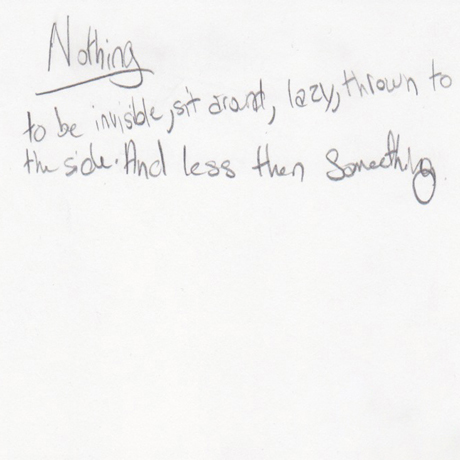 Nothing
to be invisible, sit around, lazy, thrown to
the side. And less then Someething